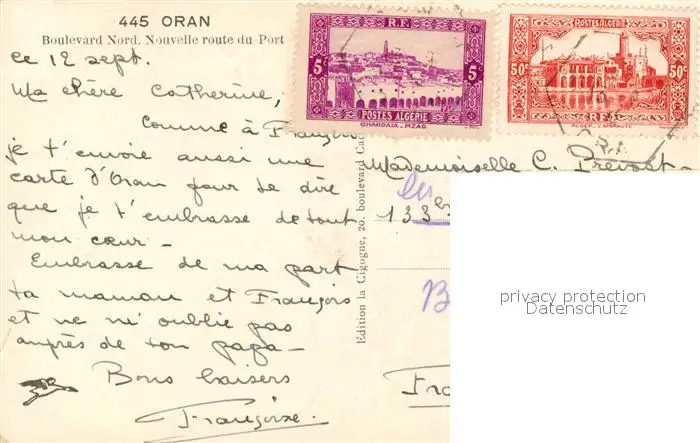 445 ORAN
Boulevard Nord. Nouvelle route du Port
ce 12 sept.
Ma chère Catherine,
Comme à François
je t'envoie aussi une
carte d'Oran pour te dire
que je t'embrasse de tout
mon cœur -
Embrasse de ma part
ta maman et François
et ne m'oublie pas
auprès de ton papa -
Bons baisers
Françoise.
Edition la Cigogne, 20, boulevard
R.F.
5c 5c
POSTES ALGERIE
GHARDAIA _ MZAB
POSTES ALGERIE
50c 50c
R F
Mademoiselle C. Prevost
133
B
Fra
privacy protection
Datenschutz